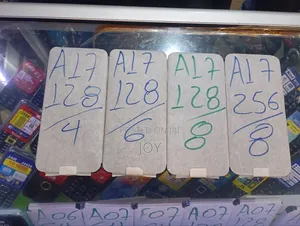 A17
128
4
A17
128
6
A17
128
8
A17
256
8
JOY
A06
A07
F07
A07
A07